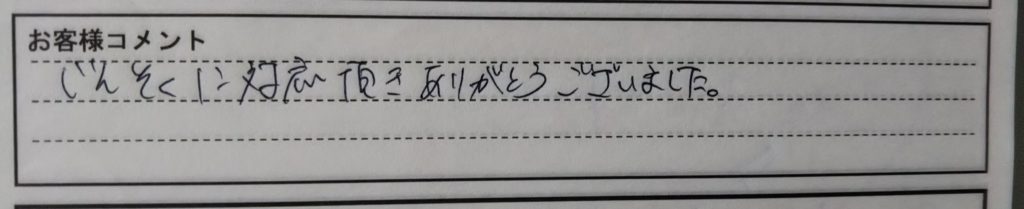 お客様コメント
じんそくに対応頂きありがとうございました。